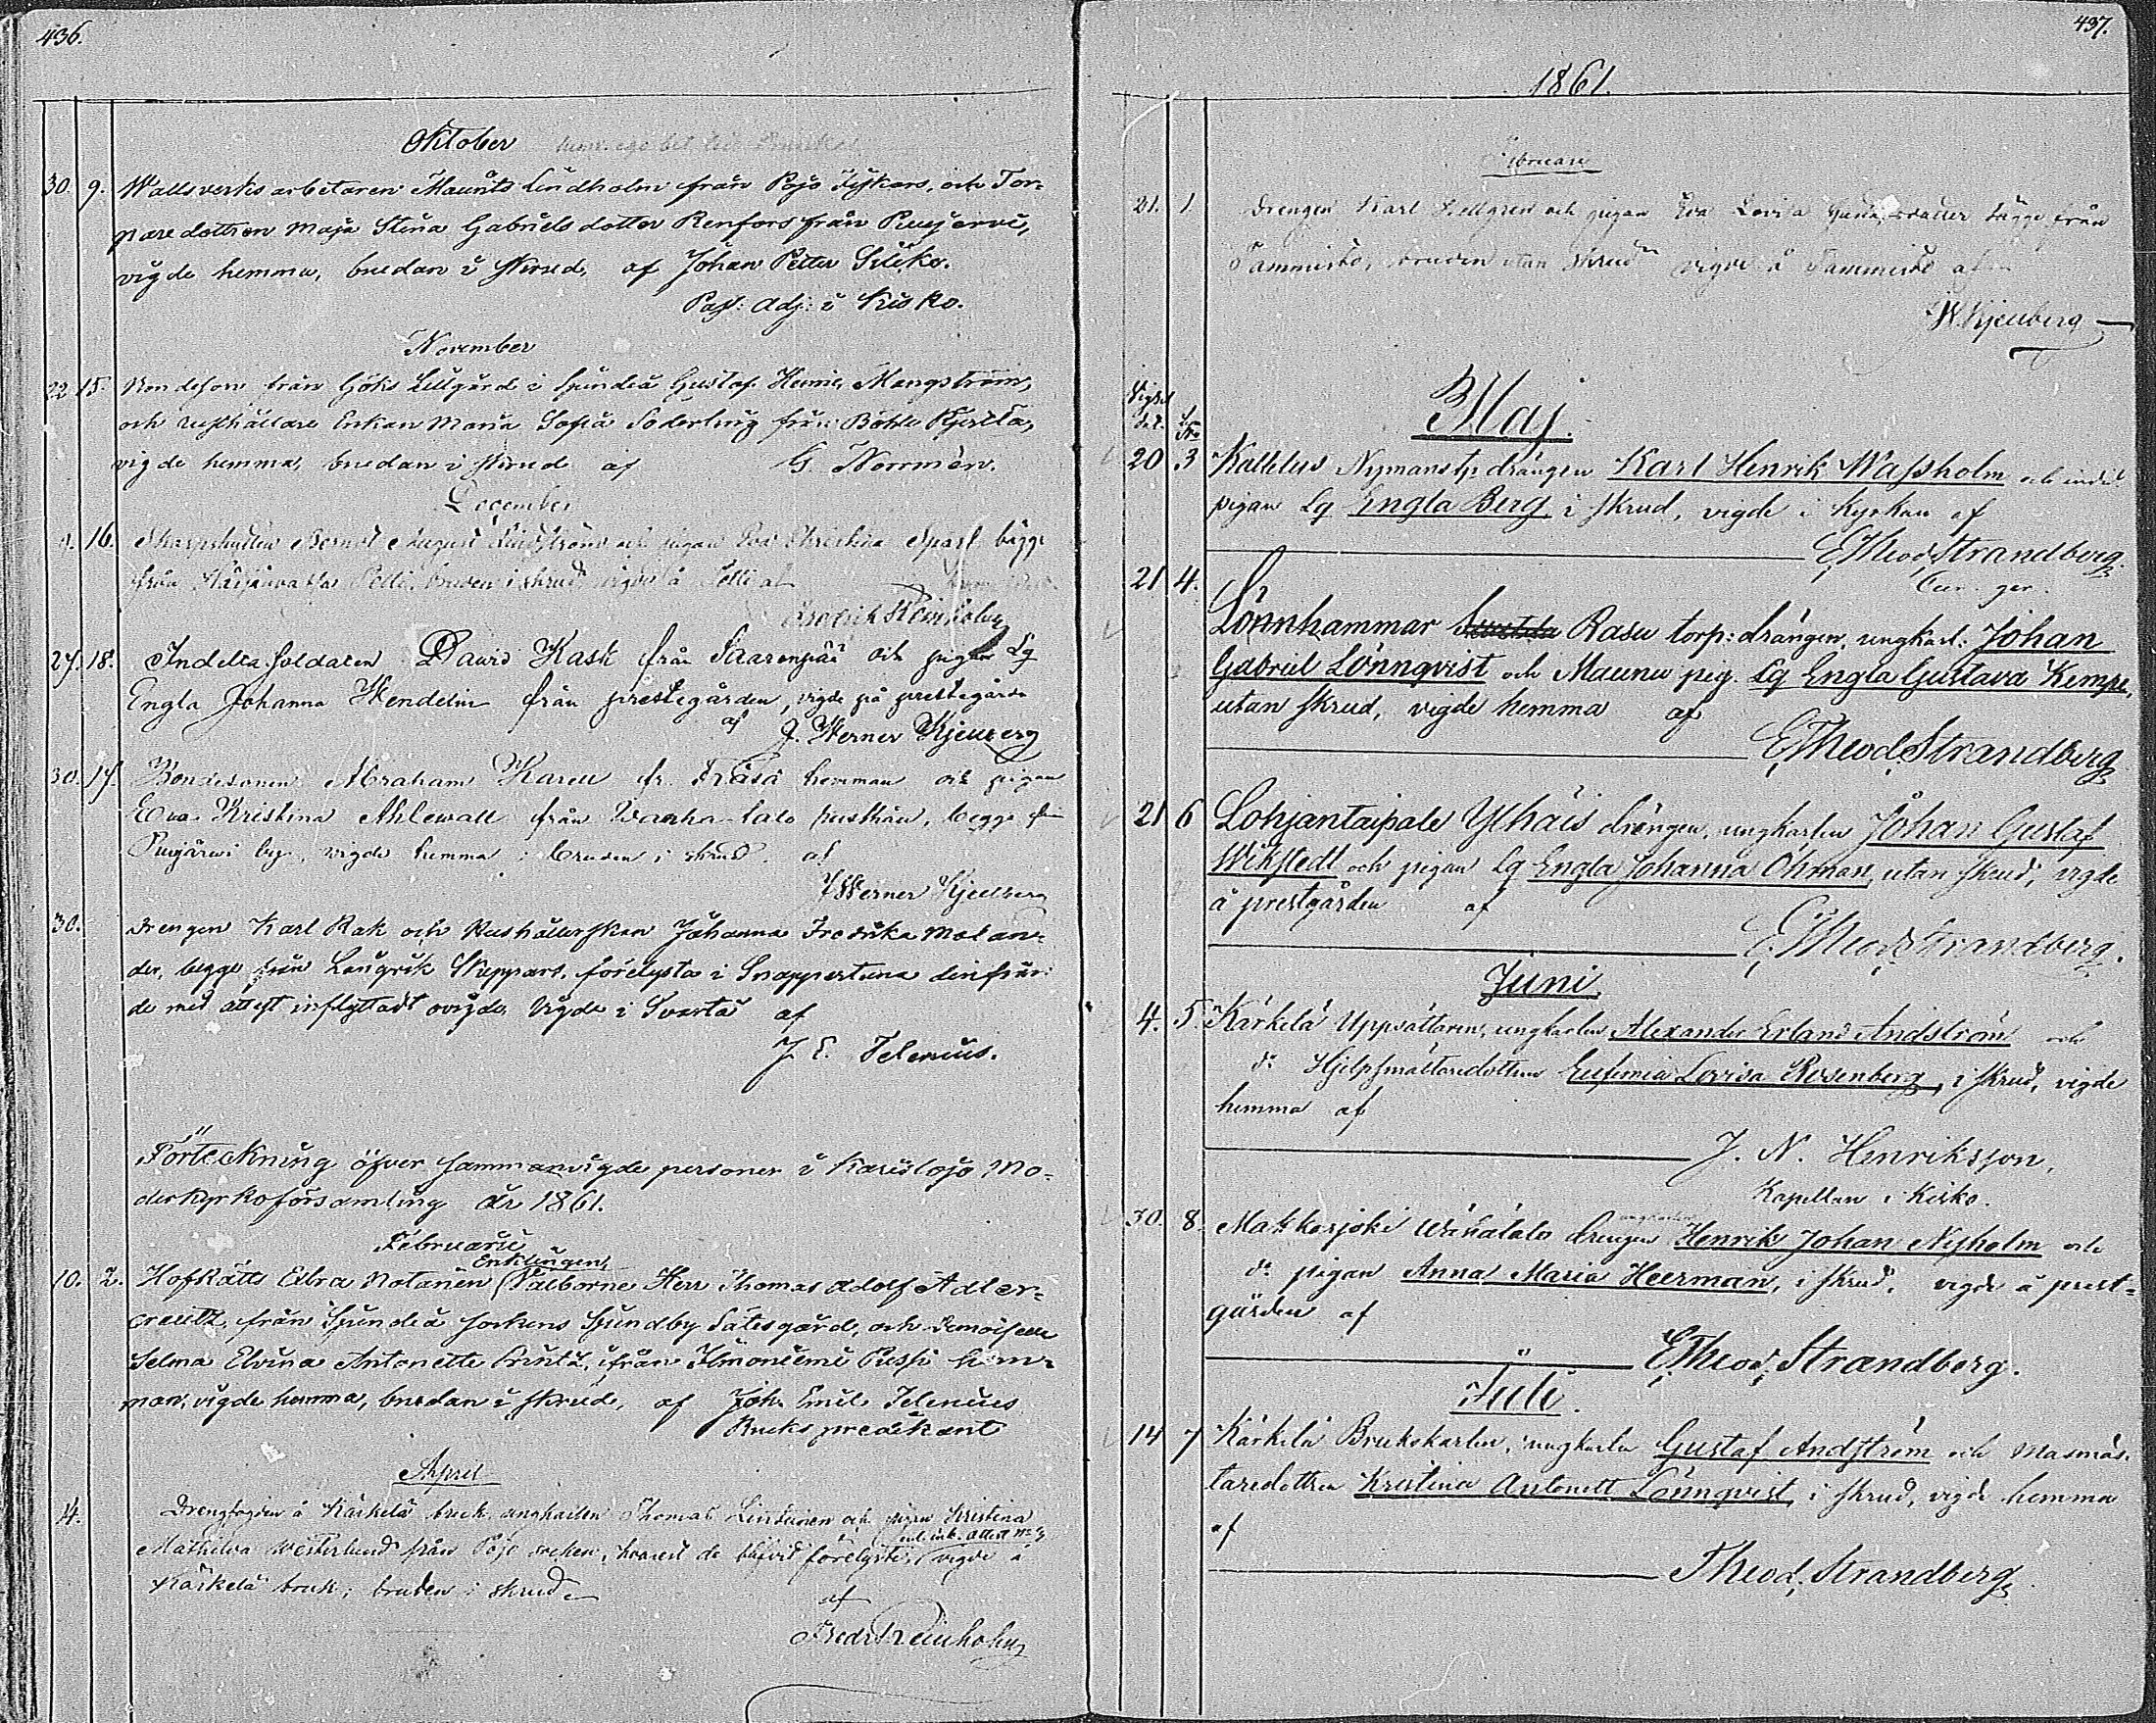 436.
Oktober
30. 9. Wallsverks arbetaren Maunts Lindholm från Pojo Fijkars, och Tor-
pare dottren Maja Stina Gabriels dotter Renfors från Pusjervi,
vigde hemma, brudan i skrud, af Johan Petter Siliko.
Past: adj: i Kisko.
November
22 15. Bondeson från Göks Lillgård i Sjundeå Gustaf Henric Mangström,
och Rusthållare Enkan Maria Sofia Söderling från Böhle Kjerila,
vigde hemma, brudan i skrud af G. Norrmén.
December
9. 16. Skarpskytten Bernt August Lindström och pigan Eva Christina Sparf bägge
från Pelli, bruden i skrud, vigde å Pelli af
Fredrik Reinholm
27. 18. Indelta soldaten David Kask från Saarenpää och pigan Lq
Engla Johanna Wendelin från prestegården, vigde på prestegården
af J. Werner Kjellberg
30. 17. Bondesonen Abraham Karell fr. Träsä hemman och pigan
Eva Kristina Ahlewall från Wanha-talo rusthåll, begge från
Pusjärwi by, vigde hemma; bruden i skrud, af
J Werner Kjellberg
30. Drengen Karl Rak och Hushållerskan Johanna Fredrika Molan-
der, begge från Långvik Skeppars, förelysta i Snappertuna
de med attest inflyttadt ovigde. Vigde i Svartå af
J. E. Telenius.
Förteckning öfver sammanvigde personer i Karislojo Mo-
derkyrkoförsamling År 1861.
Februarii
Enklingen
10. 2. Hofrätts Extra Notarien Välborne Herr Thomas Adolf Adler-
creutz, från Sjundeå sockens Sjundby Säterigård, och Demoiselle
Selma Elvina Antonette Printz, ifrån Ilmoniemi Pussi hem-
man, vigde hemma, brudan i skrud, af Joh. Emil Telenius
Bruks predikant
April
14. Drengfogden å Kärkelä bruk, ungkarlen Thomas Lindroen och pigan Kristina
enl. ink. attest No 3
Mathilda Westerlund från Pojo socken, hvarest de blifvit förelyste, vigde å
Kärkelä bruk; bruden i skrud
af
Fredr Reinholm
437.
1861.
Februari
21. 1. Drengen Karl Hellgren och pigan Eva Lovisa bägge från
Sammisto, bruden utan skrud vigde å Sammisto af
W. Kjellberg
Maj.
Vigsel
dat. No
20 3 Kallelus Nymans tp drängen Karl Henrik Wassholm och
pigan Lq Engla Berg i skrud, vigde i Kyrkan af
E. Theod. Strandberg.
21 4. Lönnhammar Rasu torp: drängen, ungkarl: Johan
Gabriel Lönnqvist och Maunu pig. Lq Engla Gustava Kempe,
utan skrud, vigde hemma af
E. Theod. Strandberg
21 6 Lohjantaipale Ylhäis drängen, ungkarlen Johan Gustaf
Wikstedt och pigan Lq Engla Johanna Öhman, utan skrud, vigde
å prestgården af
E. Theod Strandberg.
Juni
4. 5. Kärkelä Uppsättaren, ungkarlen Alexander Erland Andström och
d:o Hjelpsmältaredottren Eufemia Lovisa Rosenberg, i skrud, vigde
hemma af
J. N. Henriksson,
Kapellan i Kisko.
ungkarlen
30. 8. Makkarjoki Wähätalo drengen Henrik Johan Nyholm och
d:o pigan Anna Maria Heerman, i skrud, vigde å prest-
gården af
E. Theod. Strandberg.
Juli.
14 7 Kärkelä Brukskarlen, ungkarlen Gustaf Andström och Masmäs-
taredottren Kristina Antonett Lönnqvist, i skrud, vigde hemma
af
Theod. Strandberg